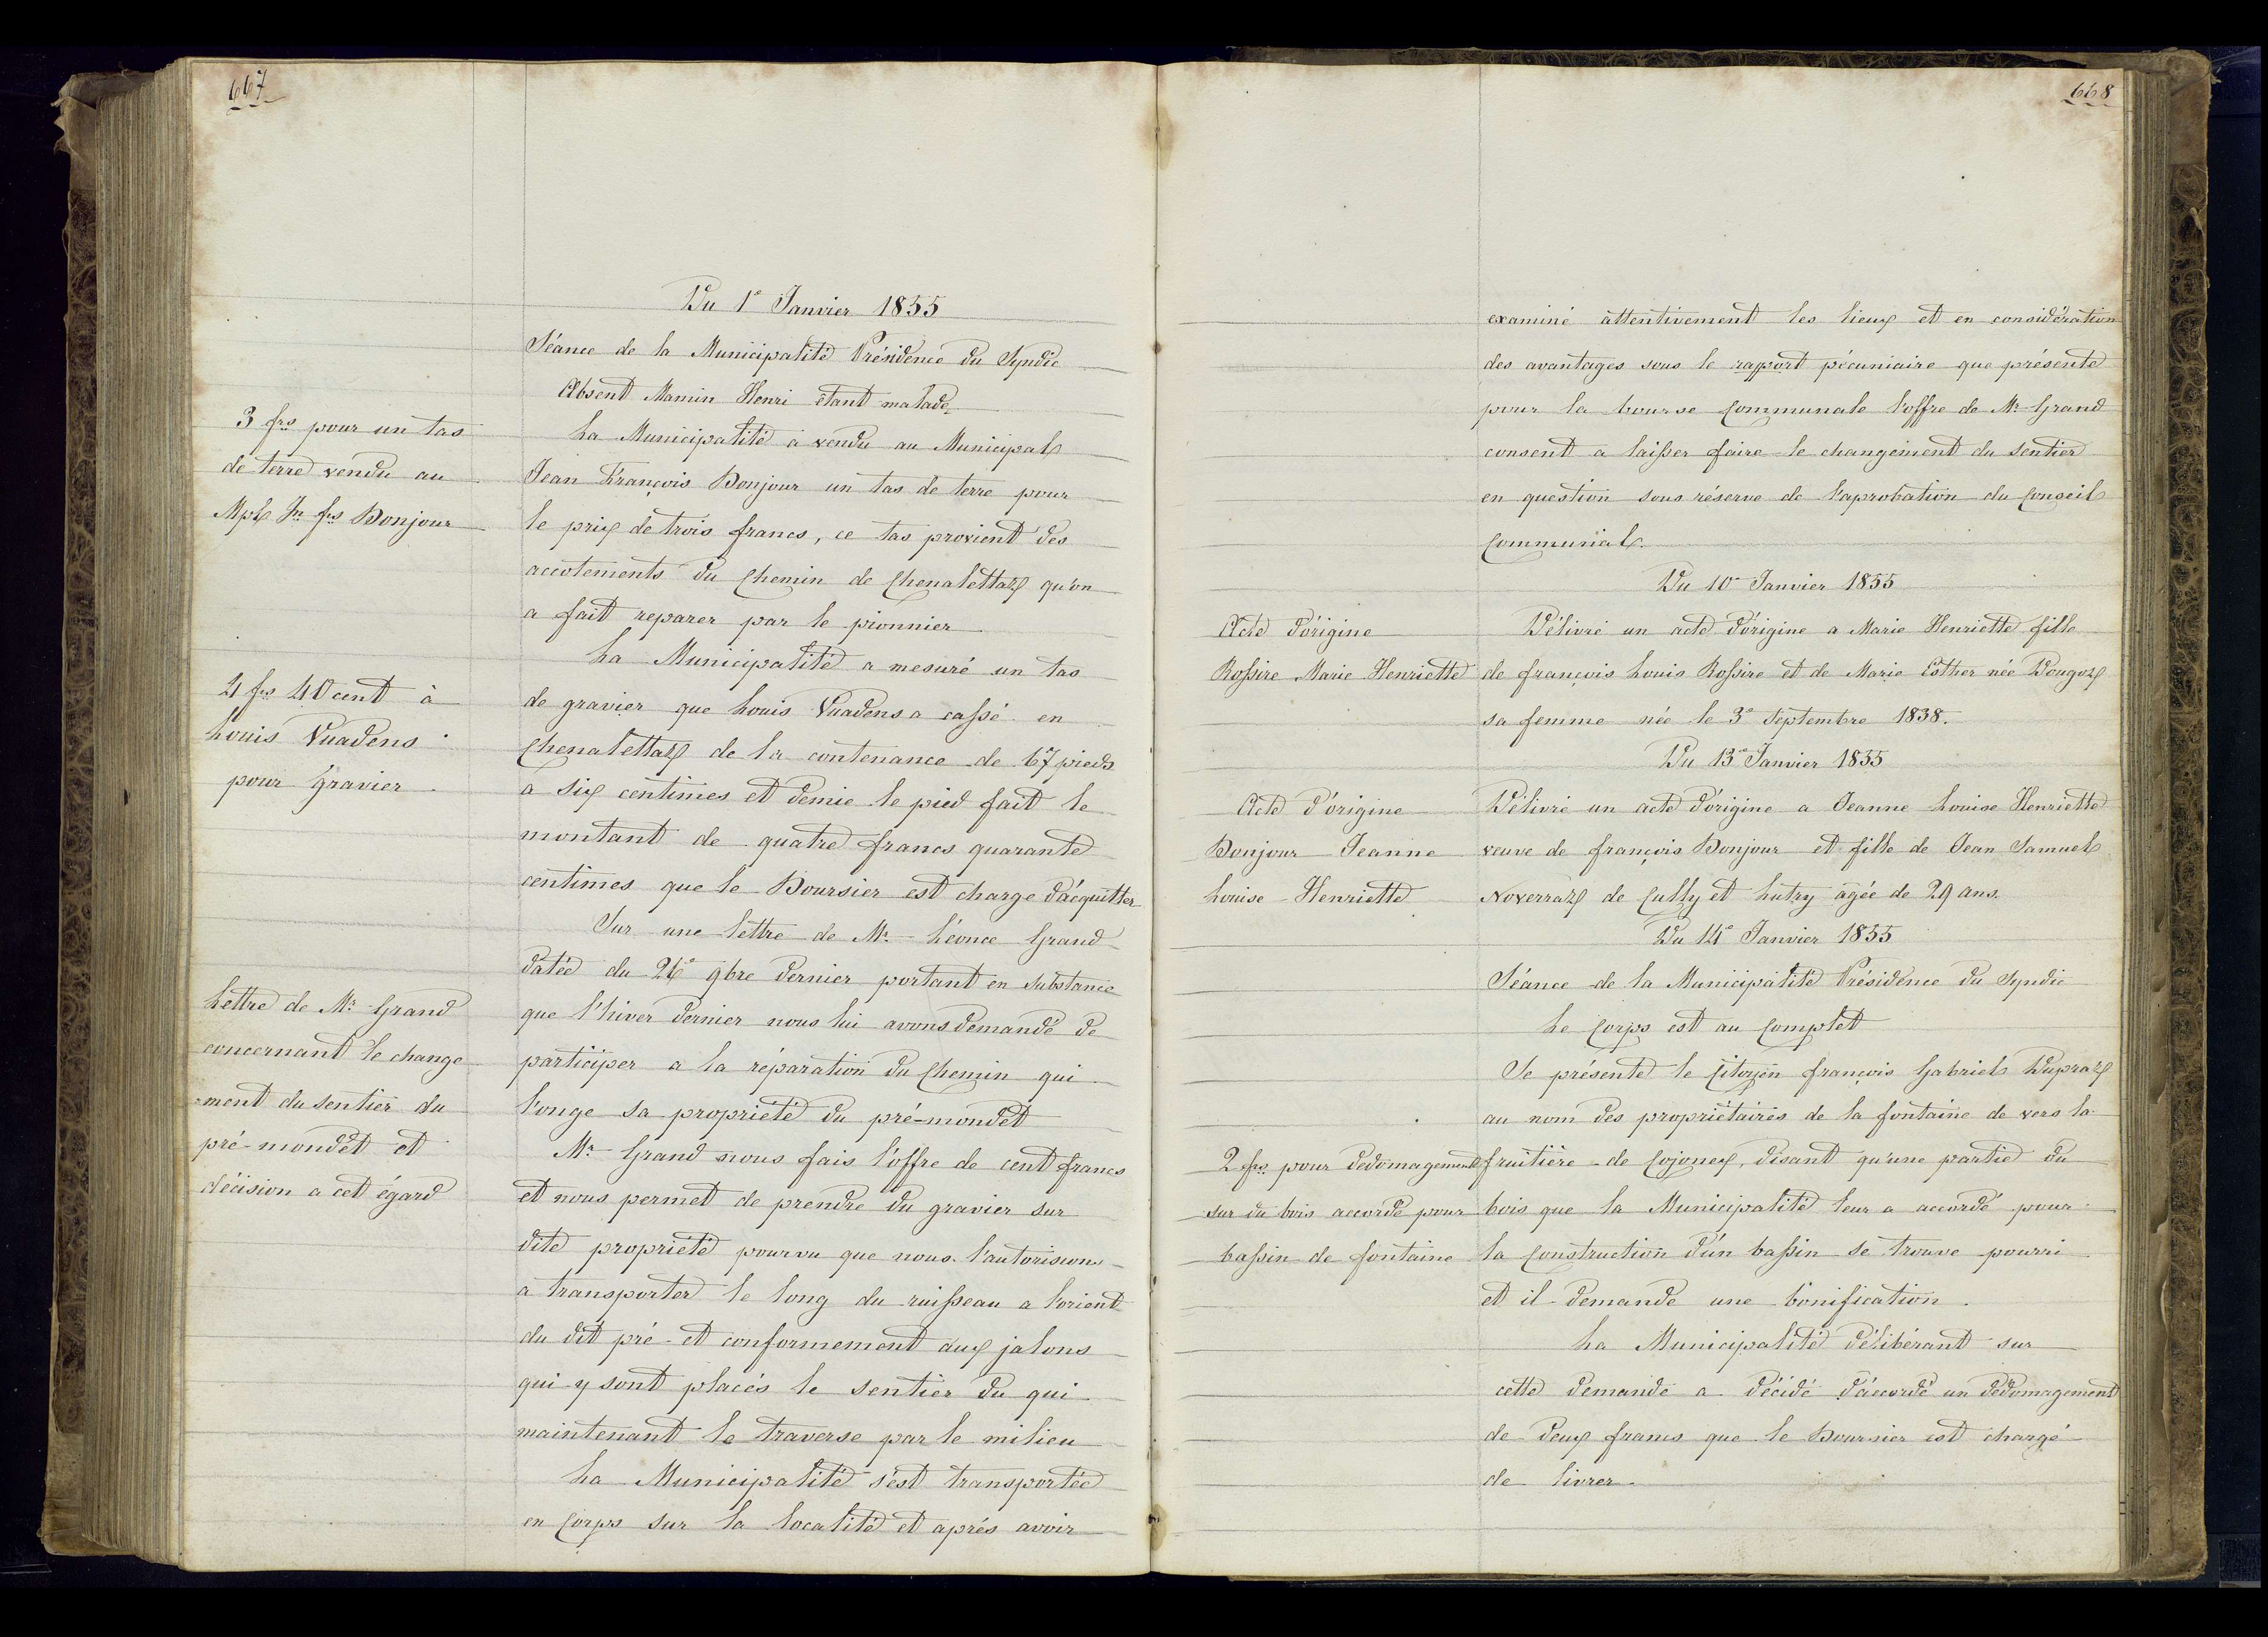 667
Du 1e Janvier 1855
Séance de la Municipalité Présidence du Syndic
Absent Mamin Henri étant malade
3 frs pour un tas
de terre vendu au
Mpl Jn fs Bonjour
La Municipalité a vendu au Municipal
Jean François Bonjour un tas de terre pour
le prix de trois francs, ce tas provient des
accotements du Chemin de Chenalettaz qu'on
a fait reparer par le pionnier
4 frs 40 cent à
Louis Vuadens
pour gravier
La Municipalité a mesuré un tas
de gravier que Louis Vuadens a cassé en
Chenalettaz de la contenance de 67 pieds
a six centimes et demie le pied fait le
montant de quatre francs quarante
centimes que le Boursier est charge d'acquitter
Lettre de Mr Grand
concernant le change
-ment du sentier du
pré-mondet et
décision a cet égard
Sur une lettre de Mr Léonce Grand
datée du 26e 9bre dernier portant en substance
que l'hiver dernier nous lui avons demandé de
participer a la réparation du Chemin qui
longe sa propriété du pré-mondet
Mr Grand nous fais l'offre de cent francs
et nous permet de prendre du gravier sur
dite propriété pourvu que nous l'autorisions
a transporter le long du ruisseau a l'orient
du dit pré et conformement aux jalons
qui y sont placés le sentier du qui
maintenant le traverse par le milieu
La Municipalité s'est transportée
en Corps sur la localité et aprés avoir
668
examiné attentivement les lieux et en considération
des avantages sous le rapport pécuniaire que présente
pour la bourse Communale l'offre de Mr Grand
consent a laisser faire le changement du sentier
en question sous réserve de l'aprobation du Conseil
Communal.
Du 10e Janvier 1855
Acte d'origine
Rossire Marie Henriette
Délivré un acte d'origine a Marie Henriette fille
de françois Louis Rossire et de Marie Esther née Dougoz
sa femme née le 3e Septembre 1838.
Du 13e Janvier 1855
Acte d'origine
Bonjour Jeanne
Louise Henriette
Délivré un acte d'origine a Jeanne Louise Henriette
veuve de françois Bonjour et fille de Jean Samuel
Noverraz de Cully et Lutry agée de 29 ans.
Du 14e Janvier 1855
Séance de la Municipalité Présidence du Syndic
Le Corps est au Complet
2 frs pour dedomagement
sur du bois accordé pour
bassin de fontaine
Se présente le Citoyen françois Gabriel Dupraz
au nom des propriétaires de la fontaine de vers la
fruitière de Cojonex, disant qu'une partie du
bois que la Municipalité leur a accordé pour
la Construction d'un bassin se trouve pourri
et il demande une bonification.
La Municipalité délibérant sur
cette demande a décidé d'accordé un dedomagement
de deux francs que le Boursier est chargé
de livrer